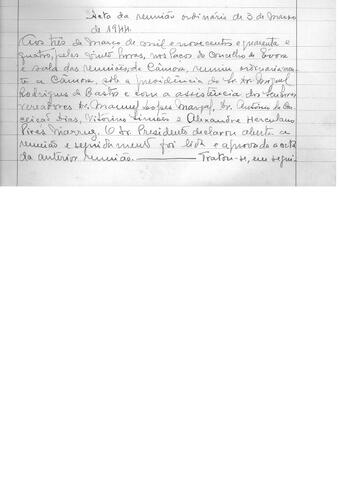 Acta da reunião ordinária de 3 de Março
de 1944
Aos três de Março de mil e novecentos e quarenta e
quatro, pelas vinte horas, nos Paços do Concelho de Evora
e sala das reuniões da Câmara, reuniu ordinariamen-
te a Câmara, sob a presidência do Sr. Dr. Miguel
Rodrigues de Bastos e com a assistência dos Senhores
vereadores Dr. Manuel Lopes Marçal, Dr. António da Con
ceição Dias, Vitorino Simões e Alexandre Herculano
Pires. O Sr. Presidente declarou aberta a
reunião e seguidamente foi lida e aprovada a acta
da anterior reunião. Tratou-se, em segui-